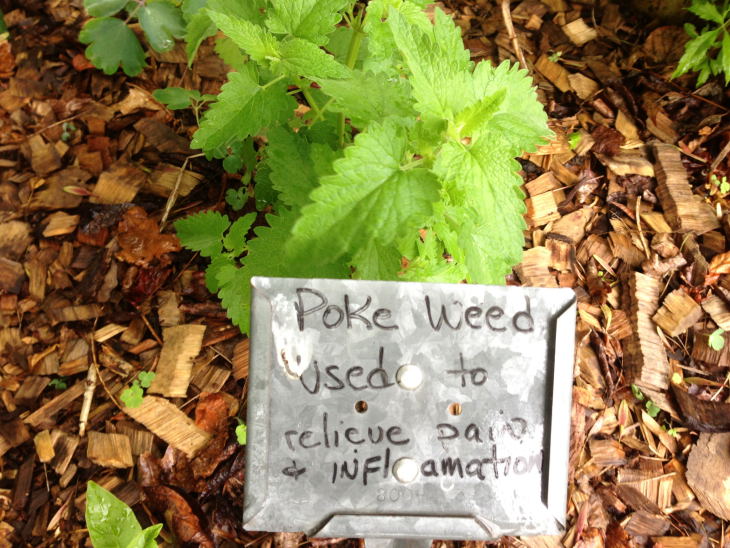 Poke Weed
Used to
relieve pain
& INFlamation